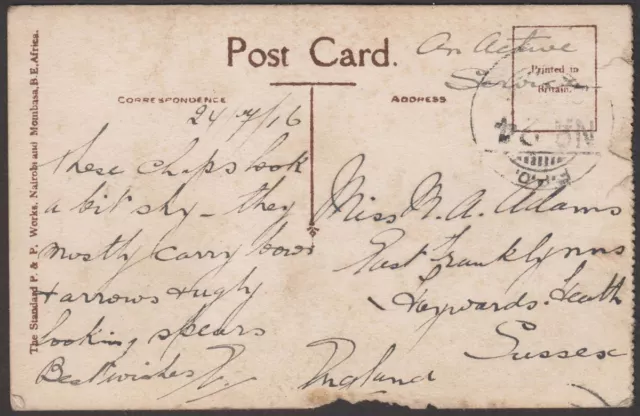 Post Card.
On Active
Service
Printed in
Britain.
CORRESPONDENCE
ADDRESS
The Standard P. & P. Works. Nairobi and Mombasa, B.E. Africa.
24/ /16
These chaps look
a bit shy – they
mostly carry bows
+ arrows + ugly
looking spears
Best wishes
Miss M. A. Adams
East Franklynns
Heywards-Heath
Sussex
England
F.P.O.